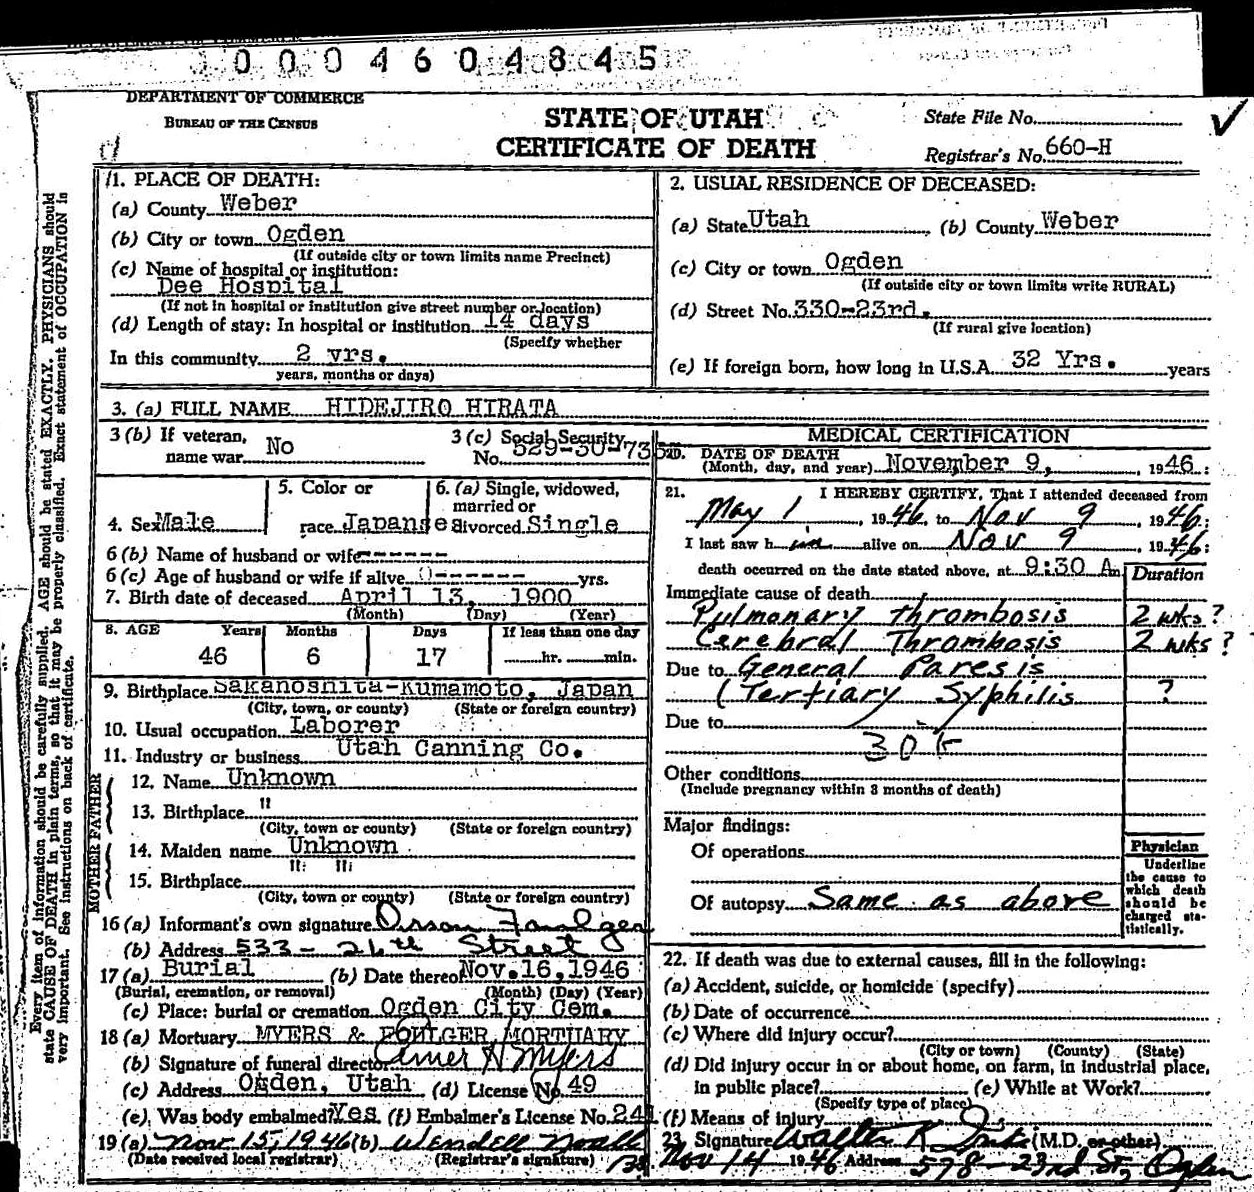 0004604845
DEPARTMENT OF COMMERCE
BUREAU OF THE CENSUS
STATE OF UTAH
CERTIFICATE OF DEATH
State File No.
Registrar's No. 660-H
Every item of information should be carefully supplied. AGE should be stated EXACTLY. PHYSICIANS should
state CAUSE OF DEATH in plain terms, so that it may be properly classified. Exact statement of OCCUPATION is
very important. See instructions on back of certificate.
1. PLACE OF DEATH:
(a) County Weber
(b) City or town Ogden
(If outside city or town limits name Precinct)
(c) Name of hospital or institution:
Dee Hospital
(If not in hospital or institution give street number or location)
(d) Length of stay: In hospital or institution 14 days
(Specify whether
In this community 2 yrs.
years, months or days)
2. USUAL RESIDENCE OF DECEASED:
(a) State Utah, (b) County Weber
(c) City or town Ogden
(If outside city or town limits write RURAL)
(d) Street No. 330-23rd.
(If rural give location)
(e) If foreign born, how long in U.S.A. 32 Yrs. years
3. (a) FULL NAME HIDEJIRO HIRATA
3 (b) If veteran,
name war No
3 (c) Social Security
No. 529-30-735
4. Sex Male
5. Color or
race Japanse
6. (a) Single, widowed,
married or
divorced Single
6 (b) Name of husband or wife ------
6 (c) Age of husband or wife if alive 0------ yrs.
7. Birth date of deceased April 13, 1900
(Month) (Day) (Year)
8. AGE Years Months Days If less than one day
46 6 17 hr. min.
9. Birthplace Sakanoshita-Kumamoto, Japan
(City, town, or county) (State or foreign country)
10. Usual occupation Laborer
11. Industry or business Utah Canning Co.
FATHER
12. Name Unknown
13. Birthplace "
(City, town or county) (State or foreign country)
MOTHER
14. Maiden name Unknown
15. Birthplace " "
(City, town or county) (State or foreign country)
16 (a) Informant's own signature Orson Foulger
(b) Address 533 - 26th Street
17 (a) Burial (b) Date thereof Nov. 16, 1946
(Burial, cremation, or removal) (Month) (Day) (Year)
(c) Place: burial or cremation Ogden City Cem.
18 (a) Mortuary MYERS & FOULGER MORTUARY
(b) Signature of funeral director Elmer H Myers
(c) Address Ogden, Utah (d) License No 49
(e) Was body embalmed? Yes (f) Embalmer's License No. 241
19 (a) Nov 15, 1946 (b) Wendell Noall
(Date received local registrar) (Registrar's signature)
MEDICAL CERTIFICATION
20. DATE OF DEATH
(Month, day, and year) November 9, 1946:
21. I HEREBY CERTIFY, That I attended deceased from
May 1, 1946, to Nov 9, 1946;
I last saw him alive on Nov 9, 1946;
death occurred on the date stated above, at 9:30 A m
Duration
Immediate cause of death
Pulmonary thrombosis 2 wks?
Cerebral Thrombosis 2 wks?
Due to General Paresis
(Tertiary Syphilis ?
Due to
30
Other conditions
(Include pregnancy within 3 months of death)
Major findings:
Of operations
Of autopsy Same as above
Physician
Underline
the cause to
which death
should be
charged sta-
tistically.
22. If death was due to external causes, fill in the following:
(a) Accident, suicide, or homicide (specify)
(b) Date of occurrence
(c) Where did injury occur?
(City or town) (County) (State)
(d) Did injury occur in or about home, on farm, in industrial place,
in public place? (e) While at Work?
(Specify type of place)
(f) Means of injury
23. Signature Walter K (M.D. or other)
Nov 14 1946 Address 578 - 23rd St, Ogden